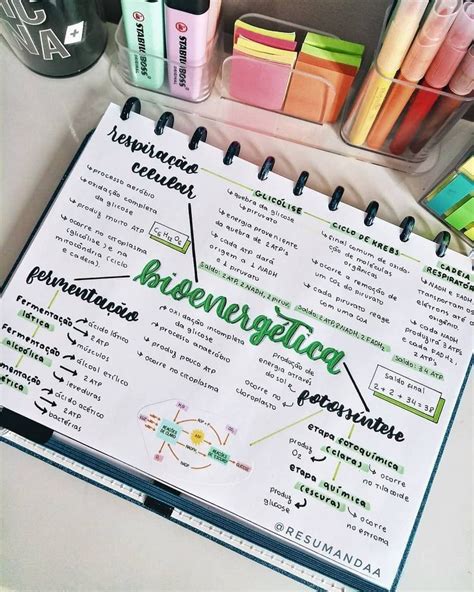 STABILO
BOSS
STABILO
BOSS
respiração
celular
processo aeróbio
oxidação completa
da glicose
produz muito ATP
ocorre no citoplasma
(glicólise) e na
mitocôndria (ciclo
e cadeia)
C6H12O6
GLICÓLISE
quebra da glicose
↳ piruvato
energia proveniente
da quebra de 2 ATPs
cada ATP dará
1 NADH
e 1 piruvato
Saldo: 2 ATP, 2 NADH, 2 PIRUV.
CICLO DE KREBS
final comum de oxidação
de moléculas
orgânicas
ocorre a remoção de
um CO2 do piruvato
cada piruvato reage
com o CoA
Saldo: 2 ATP, 8 NADH, 2 FADH2
CADEIA
RESPIRATÓRIA
NADH e FADH
transportam
elétrons e
oxigênio
cada NADH
produzirá 3 ATPs
cada FADH2
2 ATPs
Saldo: 34 ATP
Saldo final
2 + 2 + 34 = 38
bioenergética
fermentação
oxidação incompleta
da glicose
processo anaeróbio
produz pouco ATP
ocorre no citoplasma
Fermentação
lática
ácido lático
2 ATP
músculos
Fermentação
alcoólica
álcool etílico
2 ATP
leveduras
Fermentação
acética
ácido acético
2 ATP
bactérias
fotossíntese
Produção de
energia
através do
sol
ocorre no
cloroplasto
etapa fotoquímica
(clara)
produz
O2
ocorre
no tilacoide
etapa química
(escura)
produz
glicose
ocorre
no estroma
REAÇÕES
DE CLARO
ATP
GLICOSE
@RESUMANDAA